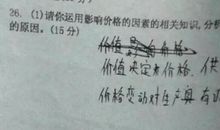 26. (1)请你运用影响价格的因素的相关知识,分析
的原因。(15分)
价值决定价格. 供
价格变动对生产